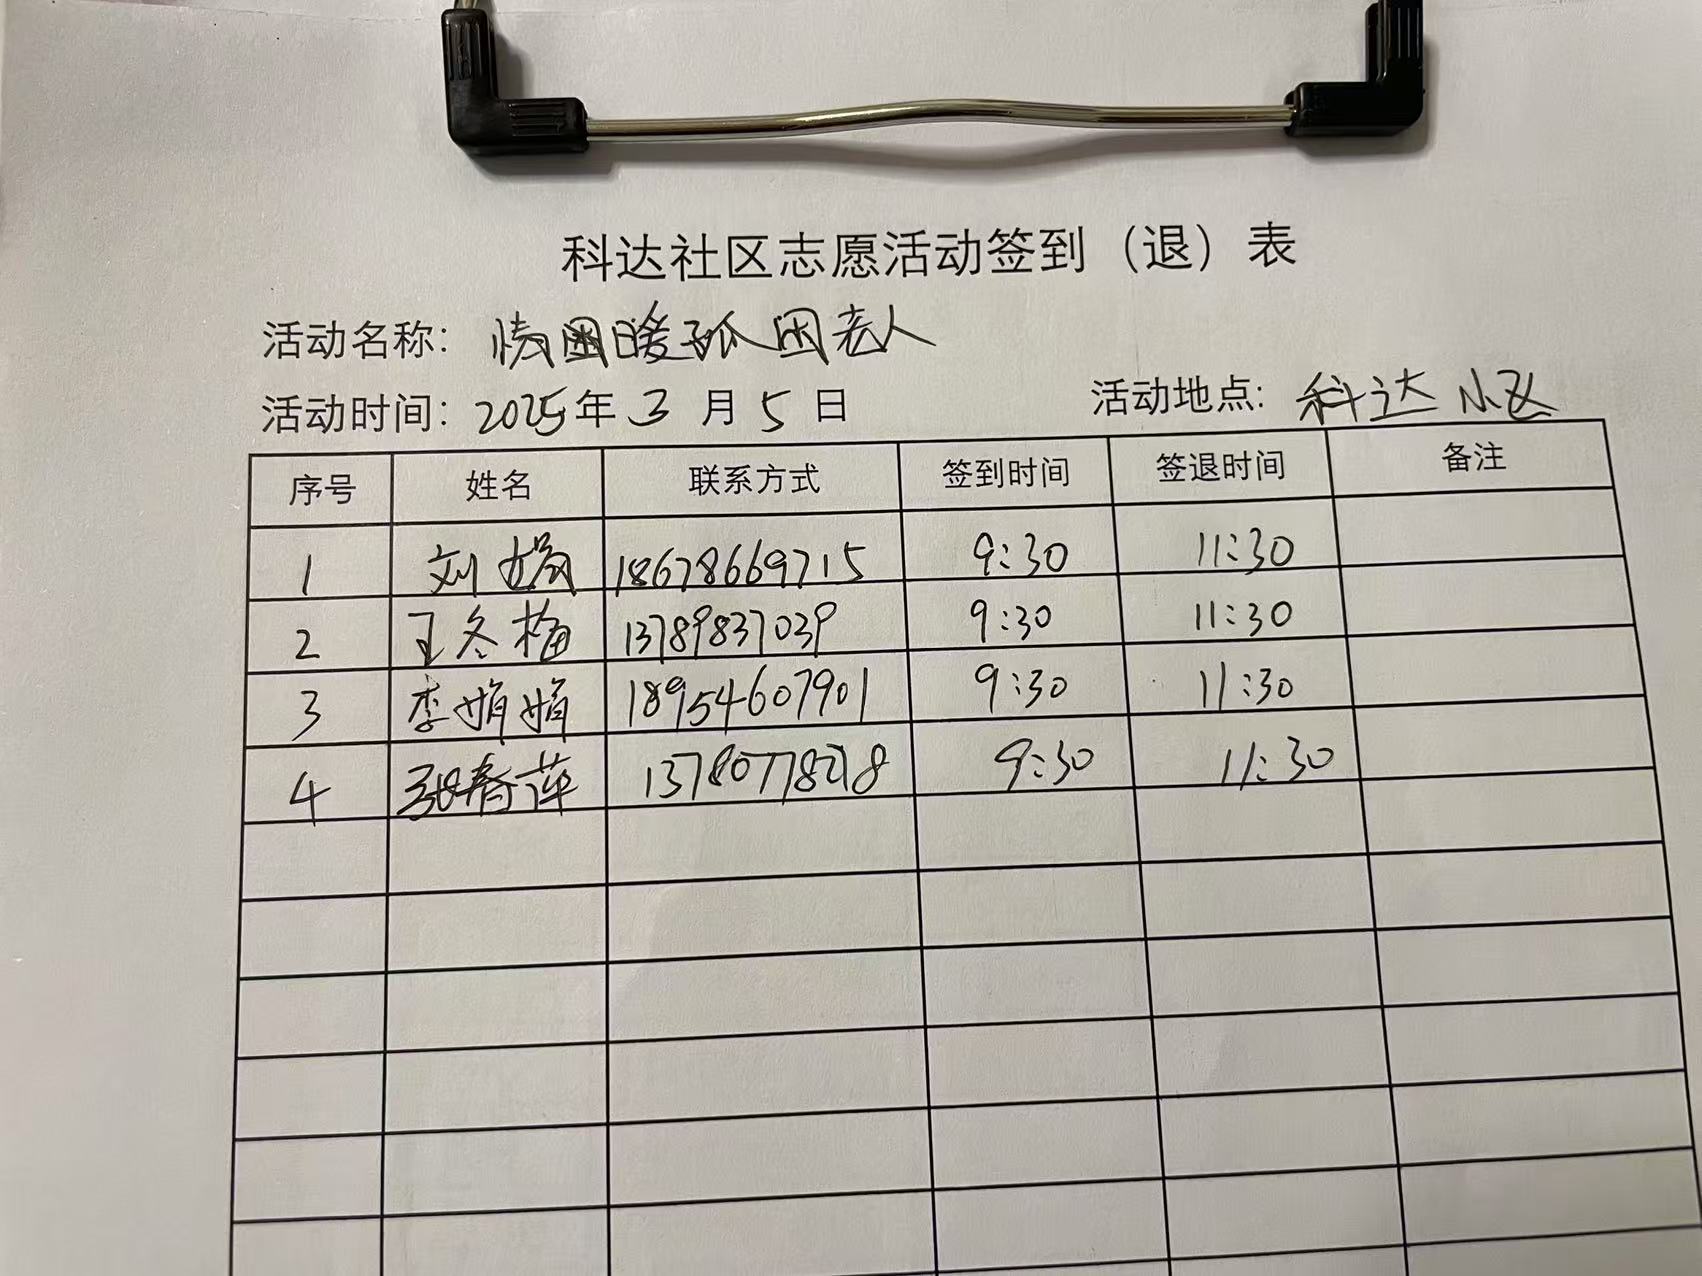 科达社区志愿活动签到（退）表
活动名称: 情暖孤困老人
活动时间: 2025年3月5日 活动地点: 科达小区
序号 姓名 联系方式 签到时间 签退时间 备注
1 刘娟 18678669715 9:30 11:30
2 王冬梅 13789837039 9:30 11:30
3 李娟娟 18954607901 9:30 11:30
4 张春萍 9:30 11:30